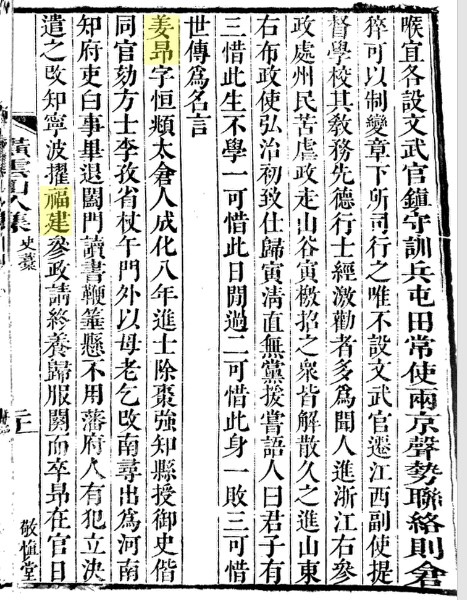 喉宜各設文武官鎮守訓兵屯田常使兩京聲勢聯絡則倉
猝可以制變章下所司行之唯不設文武官遷江西副使提
督學校其敎務先德行士經激勸者多爲聞人進浙江右參
政處州民苦虐政走山谷寅檄招之衆皆解散久之進山東
右布政使弘治初致仕歸寅淸直無黨援嘗語人曰君子有
三惜此生不學一可惜此日閒過二可惜此身一敗三可惜
世傳爲名言
姜昻字恒頫太倉人成化八年進士除棗強知縣授御史偕
同官劾方士李孜省杖午門外以母老乞改南尋出爲河南
知府吏白事畢退闔門讀書鞭箠懸不用藩府人有犯立決
遣之改知寧波擢福建參政請終養歸服闋而卒昻在官日
橫雲山人集
史藁
敬愼堂